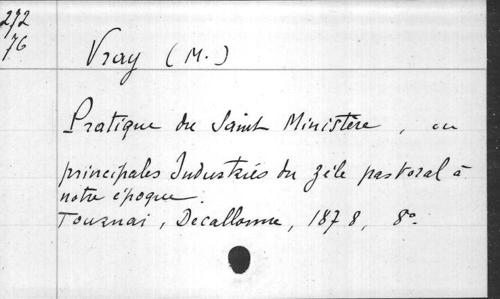 272
76
Vray (M.)
Pratique du Saint Ministère, ou
principales Industries du zèle pastoral à
notre époque.
Tournai, Decallonne, 1878, 8º.